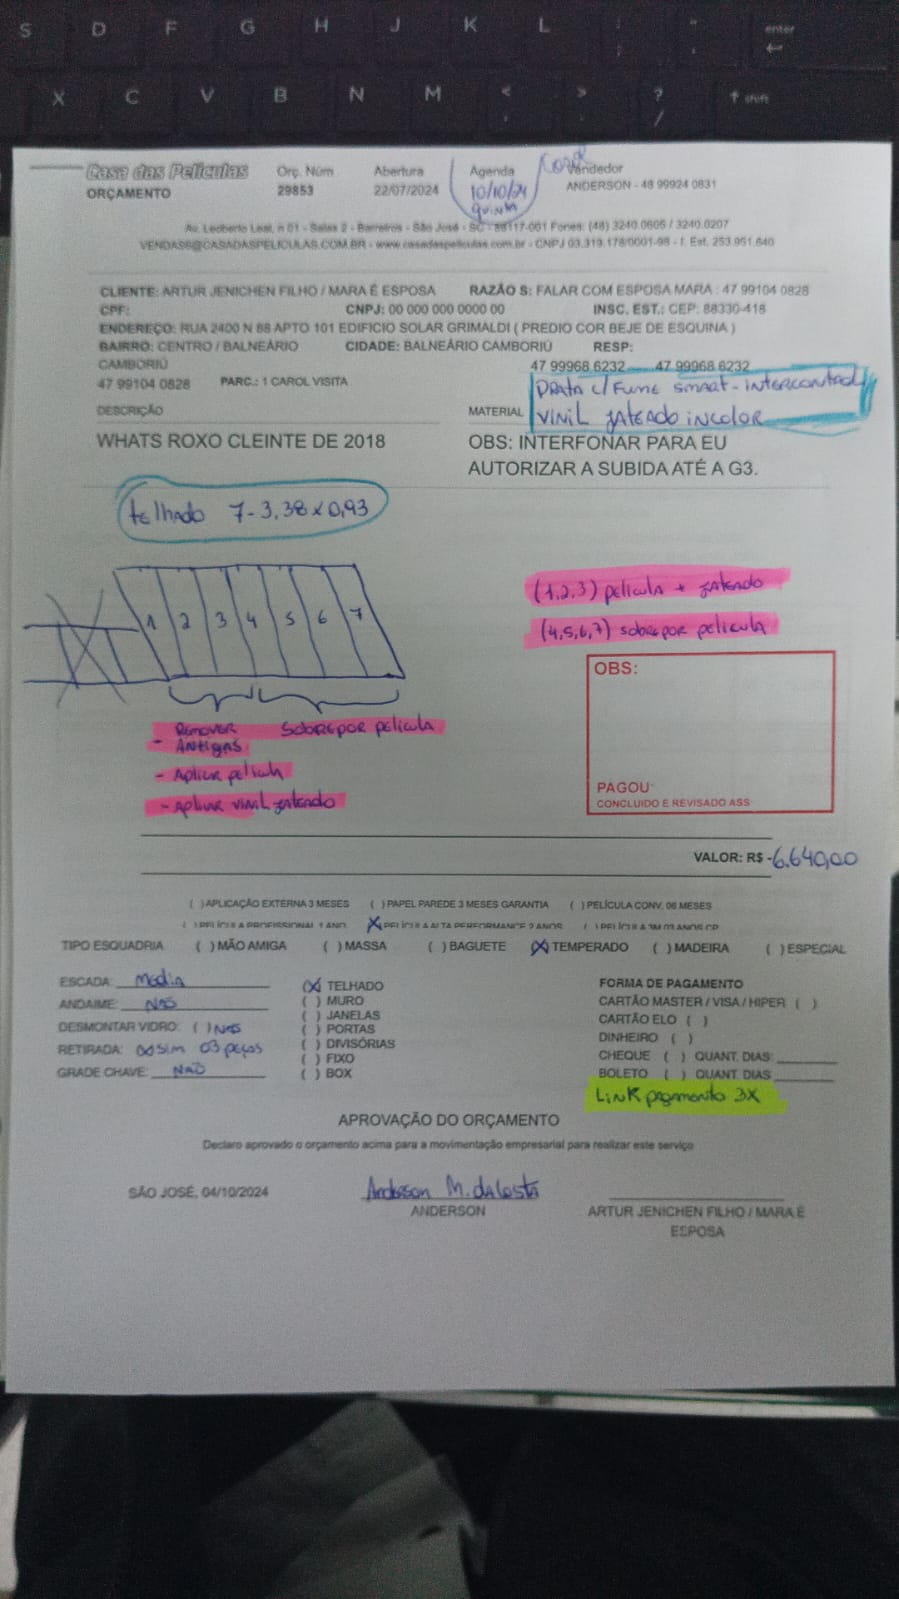 S D F G H J K L : ; " ' enter
X C V B N M < , > . ? / shift
Casa das Películas
ORÇAMENTO
Orç. Núm
29853
Abertura
22/07/2024
Agenda
10/10/24
quinta
Vendedor
ANDERSON - 48 99924 0831
Av. Leoberto Leal, n 01 - Salas 2 - Barreiros - São José - SC - 88117-001 Fones: (48) 3240.0605 / 3240.0207
VENDAS6@CASADASPELICULAS.COM.BR - www.casadaspeliculas.com.br - CNPJ 03.319.178/0001-98 - I. Est. 253.951.640
CLIENTE: ARTUR JENICHEN FILHO / MARA É ESPOSA RAZÃO S: FALAR COM ESPOSA MARA : 47 99104 0828
CPF: CNPJ: 00 000 000 0000 00 INSC. EST.: CEP: 88330-418
ENDEREÇO: RUA 2400 N 88 APTO 101 EDIFICIO SOLAR GRIMALDI ( PREDIO COR BEJE DE ESQUINA )
BAIRRO: CENTRO / BALNEÁRIO CIDADE: BALNEÁRIO CAMBORIÚ RESP:
CAMBORIÚ 47 99968 6232 47 99968 6232
47 99104 0828 PARC.: 1 CAROL VISITA
PRATA c/ Fume smart - intercontrol
DESCRIÇÃO MATERIAL VINIL JATEADO incolor
WHATS ROXO CLEINTE DE 2018
OBS: INTERFONAR PARA EU
AUTORIZAR A SUBIDA ATÉ A G3.
telhado 7 - 3,38 x 0,93
1 2 3 4 5 6 7
(1,2,3) pelicula + jateado
(4,5,6,7) sobrepor pelicula
OBS:
PAGOU
CONCLUIDO E REVISADO ASS
Remover sobrepor pelicula
- Antigas
- Aplicar pelicula
- Aplicar vinil jateado
VALOR: R$ - 6.640,00
( ) APLICAÇÃO EXTERNA 3 MESES ( ) PAPEL PAREDE 3 MESES GARANTIA ( ) PELÍCULA CONV. 06 MESES
( ) PELÍCULA PROFISSIONAL 1 ANO (X) PELÍCULA ALTA PERFORMANCE 2 ANOS ( ) PELÍCULA 3M 03 ANOS CP
TIPO ESQUADRIA ( ) MÃO AMIGA ( ) MASSA ( ) BAGUETE (X) TEMPERADO ( ) MADEIRA ( ) ESPECIAL
ESCADA: media
ANDAIME: NÃO
DESMONTAR VIDRO: ( ) NÃO
RETIRADA: sim 03 peças
GRADE CHAVE: NÃO
(X) TELHADO
( ) MURO
( ) JANELAS
( ) PORTAS
( ) DIVISÓRIAS
( ) FIXO
( ) BOX
FORMA DE PAGAMENTO
CARTÃO MASTER / VISA / HIPER ( )
CARTÃO ELO ( )
DINHEIRO ( )
CHEQUE ( ) QUANT. DIAS:
BOLETO ( ) QUANT. DIAS
Link pagamento 3X
APROVAÇÃO DO ORÇAMENTO
Declaro aprovado o orçamento acima para a movimentação empresarial para realizar este serviço
SÃO JOSÉ, 04/10/2024
Anderson M. da Costa
ANDERSON
ARTUR JENICHEN FILHO / MARA É
ESPOSA